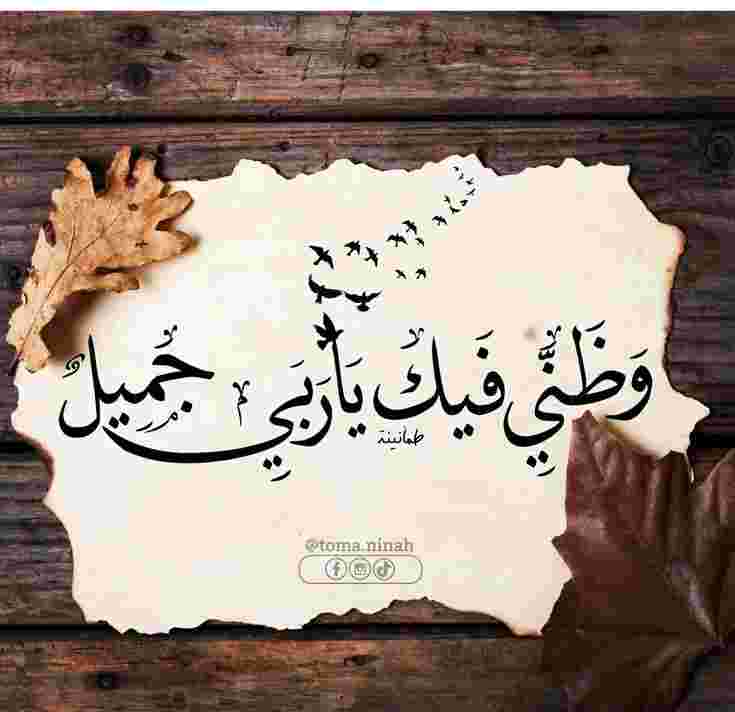 وَظَنِّي فَيك يَارَبَي جُميلٌ
طمانينة
@toma.ninah